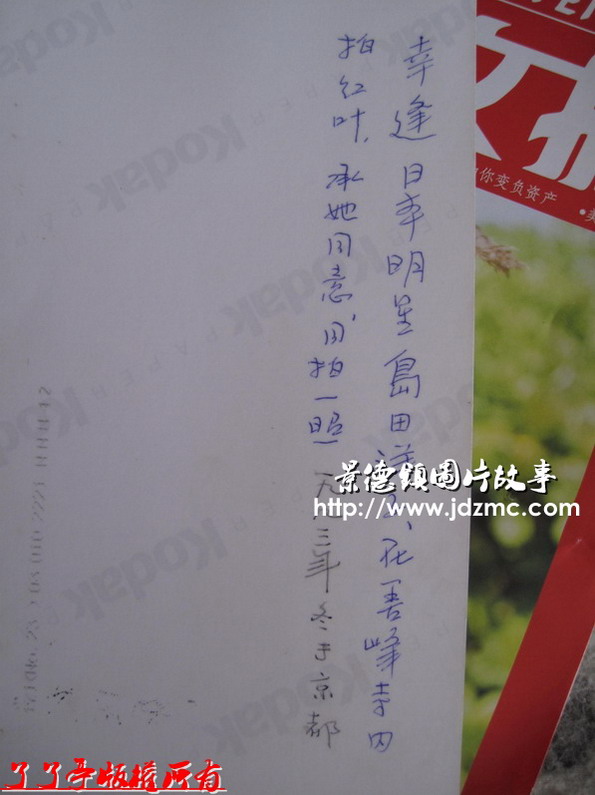 幸逢日本明星島田洋子、在善峰寺内
拍红叶，承她同意，同拍一照 一九 三年冬于京都
Kodak
Kodak
Kodak
Kodak
Kodak
你变负资产
景德鎮圖片故事
http://www.jdzmc.com
了了亭版權所有